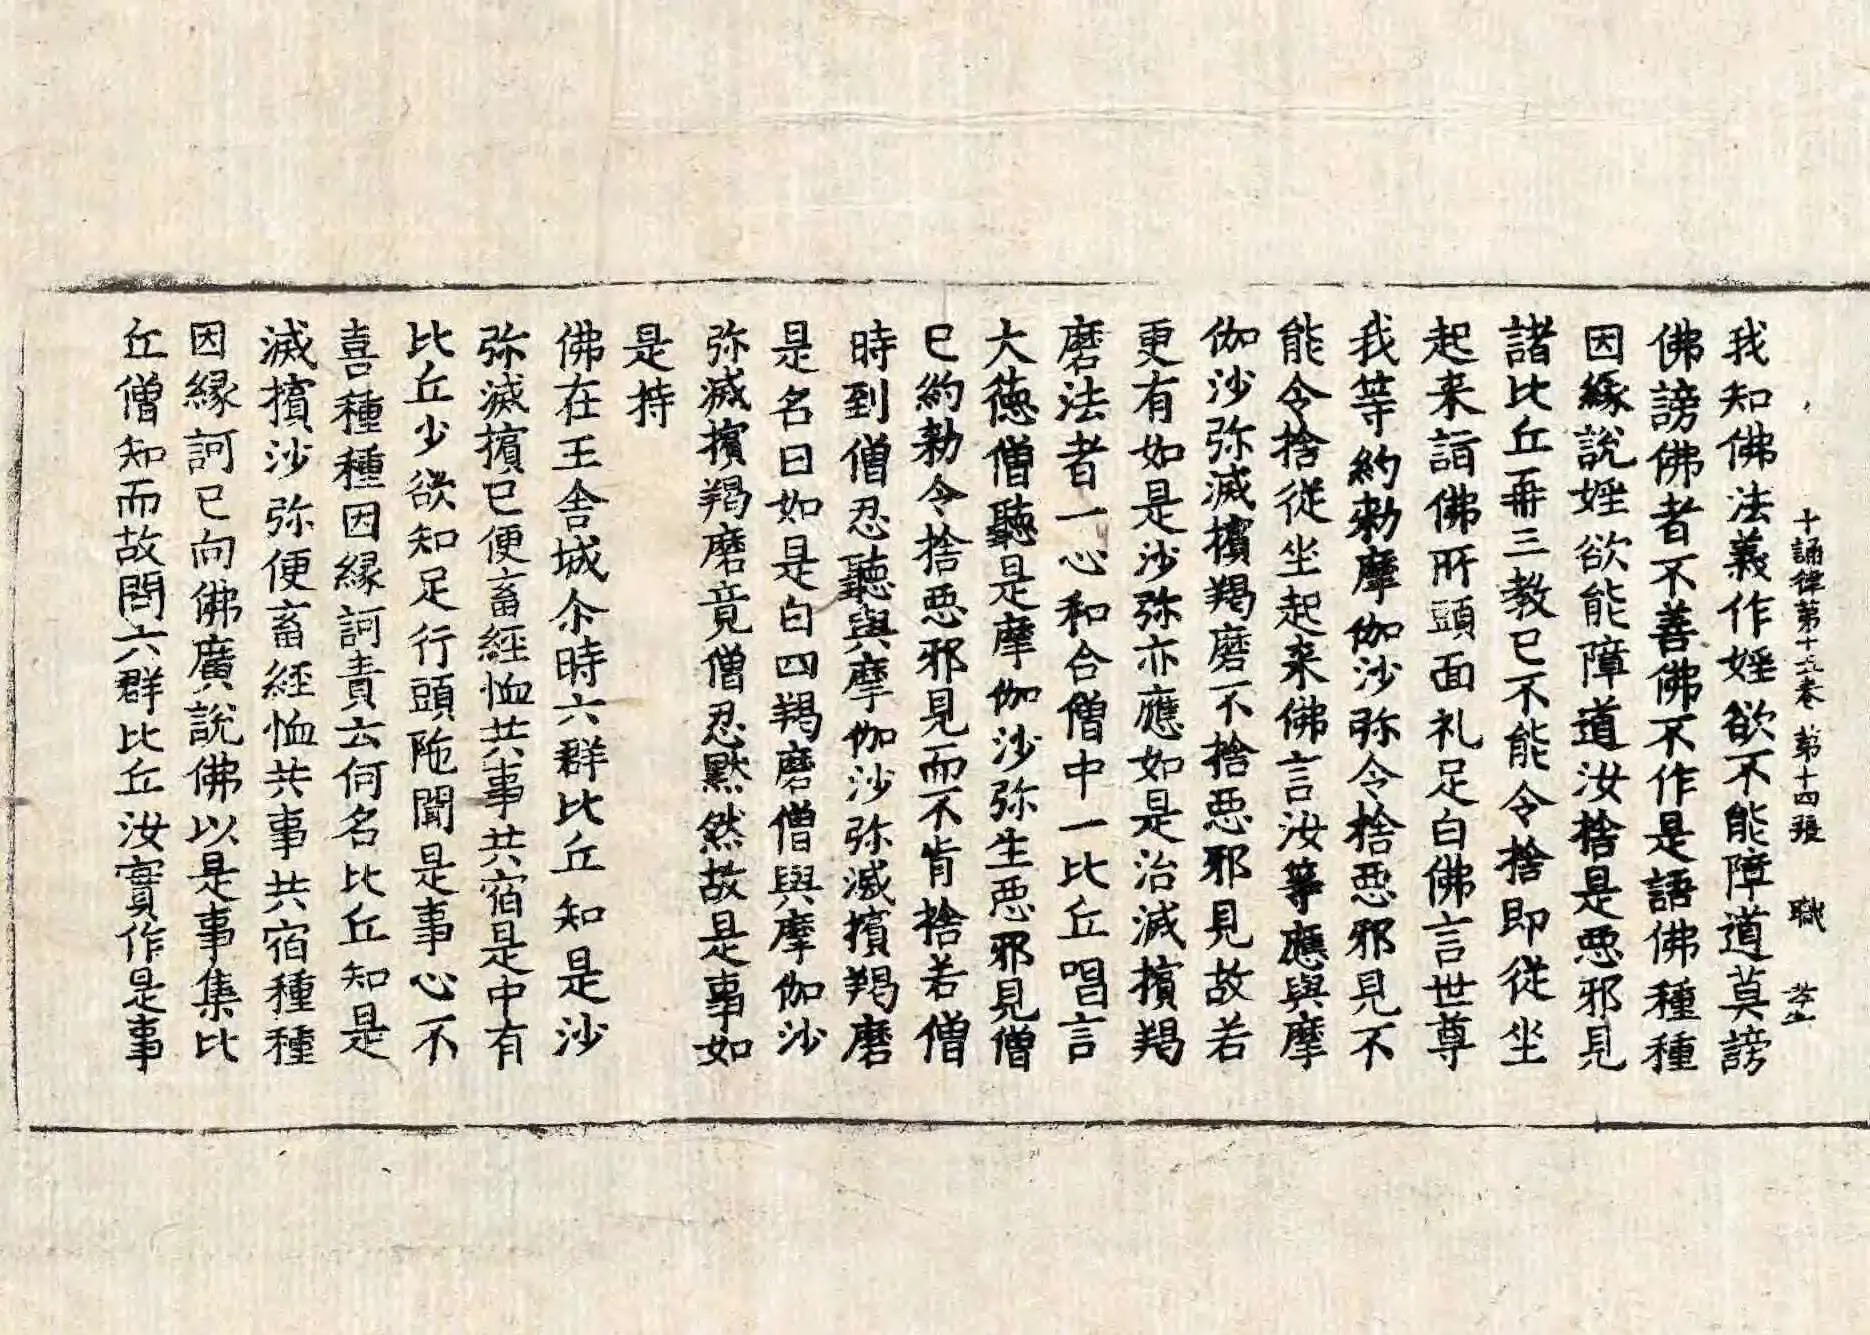 十誦律第十五卷 第十四張 職
我知佛法義作婬欲不能障道莫謗
佛謗佛者不善佛不作是語佛種種
因縁說婬欲能障道汝捨是惡邪見
諸比丘再三教已不能令捨即從坐
起来詣佛所頭面礼足白佛言世尊
我等約勅摩伽沙弥令捨惡邪見不
能令捨從坐起来佛言汝等應與摩
伽沙弥滅擯羯磨不捨惡邪見故若
更有如是沙弥亦應如是治滅擯羯
磨法者一心和合僧中一比丘唱言
大德僧聽是摩伽沙弥生惡邪見僧
已約勅令捨惡邪見而不肯捨若僧
時到僧忍聽與摩伽沙弥滅擯羯磨
是名曰如是白四羯磨僧與摩伽沙
弥滅擯羯磨竟僧忍黙然故是事如
是持
佛在王舍城尒時六群比丘知是沙
弥滅擯已便畜經恤共事共宿是中有
比丘少欲知足行頭陁聞是事心不
喜種種因縁訶責云何名比丘知是
滅擯沙弥便畜經恤共事共宿種種
因縁訶已向佛廣說佛以是事集比
丘僧知而故問六群比丘汝實作是事